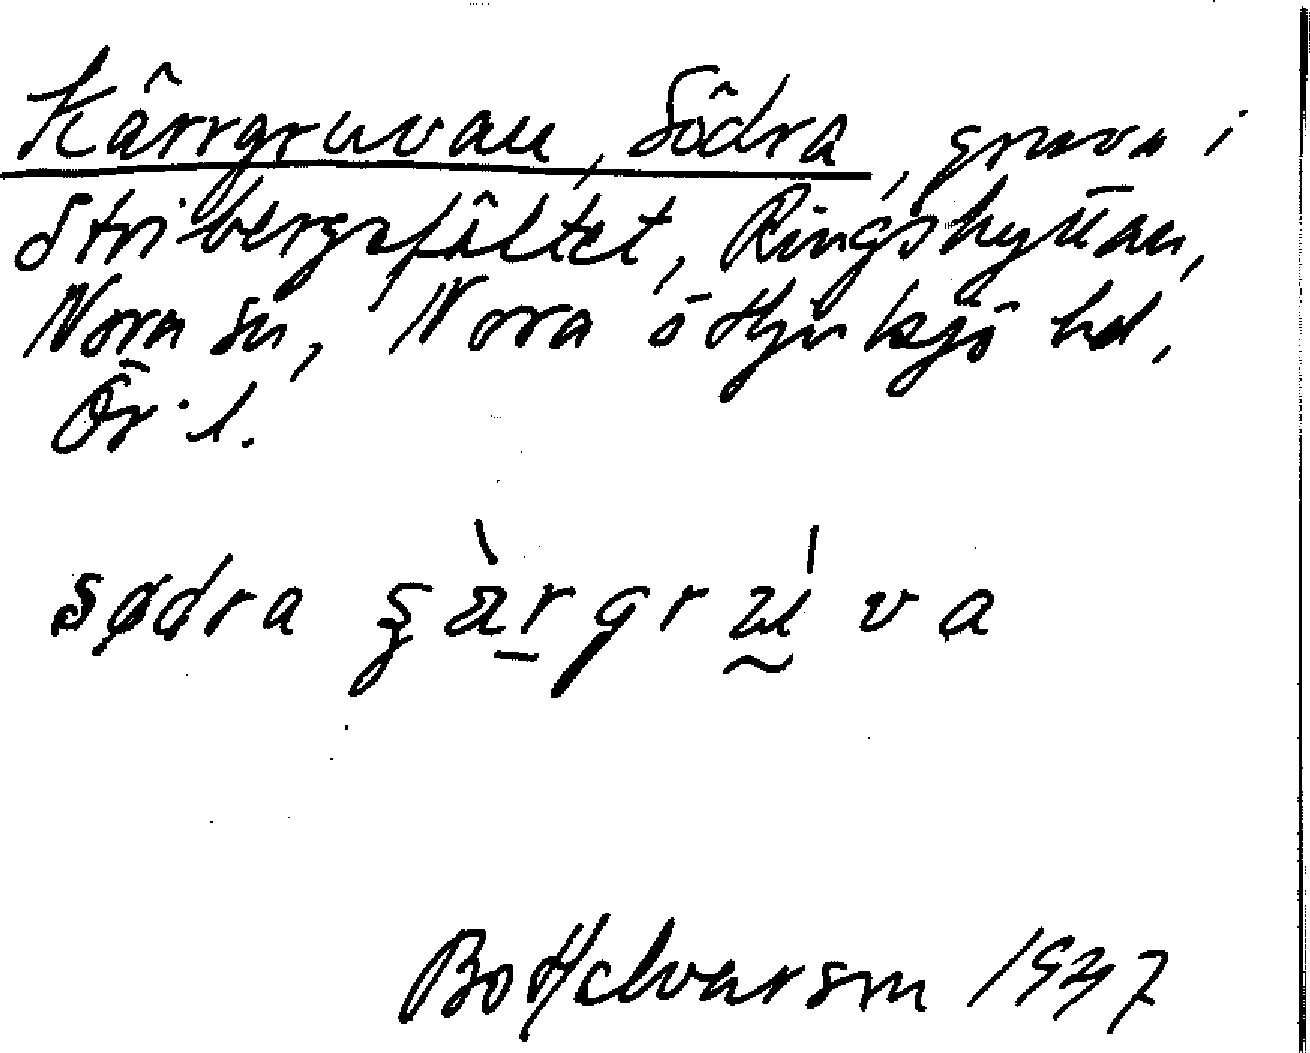 Kärrgruvan, Södra, gruva i
Stribergsfältet, Ringshyttan,
Nora sn, Nora o Hjulsjö hd,
Ör. l.
sødra
Bo Helvarsm 1937